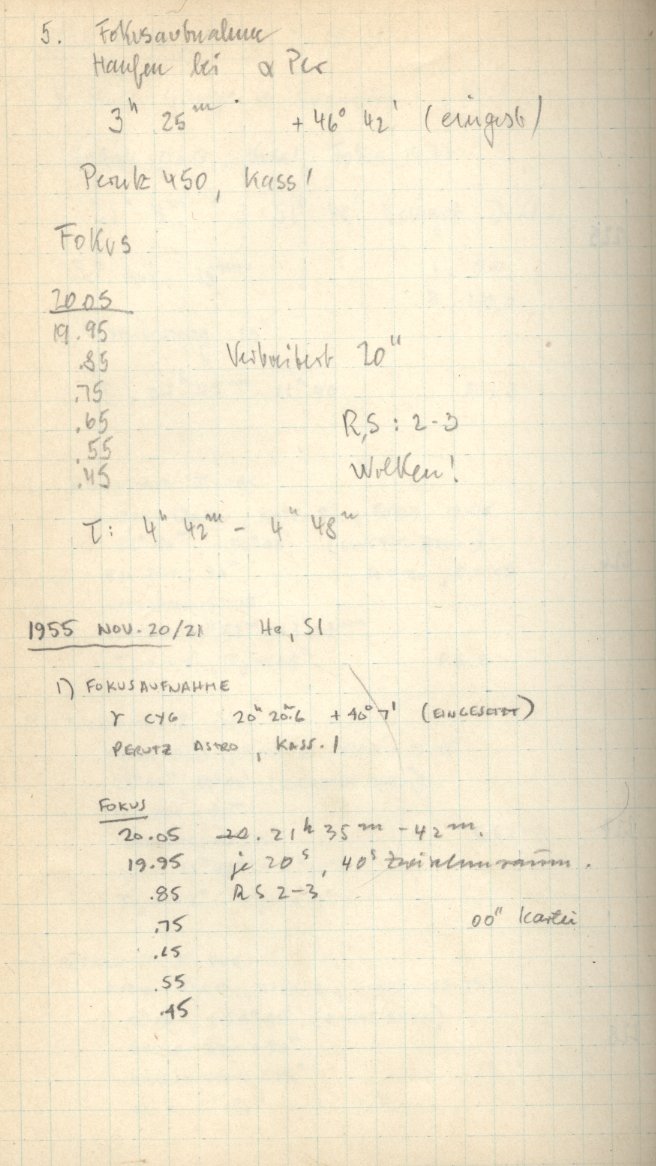 5. Fokusaufnahme
Haufen bei α Per
3ʰ 25ᵐ +46° 42' (eingest)
Perutz 450, Kass 1
Fokus
20.05
19.95
.85 Verbreitert 20"
.75
.65 R,S : 2-3
.55
.45 Wolken!
τ: 4ʰ 42ᵐ - 4ʰ 48ᵐ
1955 NOV. 20/21 Ha, Sl
1) FOKUSAUFNAHME
γ CYG 20ʰ 20ᵐ.6 +40° 7' (EINGESETZT)
PERUTZ ASTRO, KASS. 1
FOKUS
20.05 20. 21ʰ 35ᵐ - 42ᵐ.
19.95 je 20ˢ, 40ˢ Zwischenraum.
.85 R S 2-3
.75 00" Kartei
.65
.55
.45